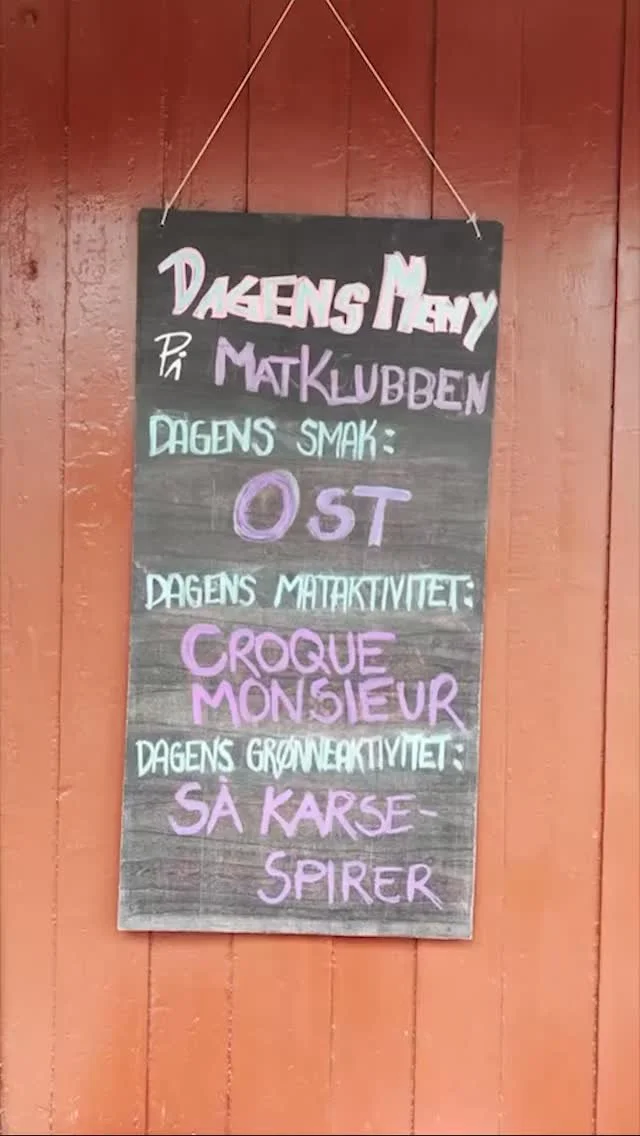 DAGENS MENY
På MATKLUBBEN
DAGENS SMAK:
OST
DAGENS MATAKTIVITET:
CROQUE
MONSIEUR
DAGENS GRØNNEAKTIVITET:
SÅ KARSE-
SPIRER